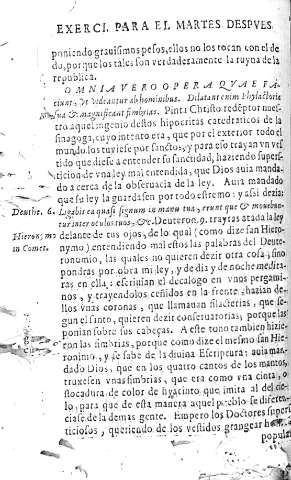 EXERCI. PARA EL MARTES DESPVES
poniendo grauissimos pesos, ellos no los tocan con el de
do, porque los tales son verdaderamente la ruyna de la
republica.
OMNIA VERO OPERA QVAE FA
ciunt, vt videantur ab hominibus. Dilatant enim Phylacteria
sua & magnificant fimbrias. Pinta Christo redẽptor nues-
tro aquel ingenio destos hipocritas catedraticos de la
sinagoga, cuyo intento era, que por el exterior todo el
mundo los tuuiesse por santos, y para esto trayan vn ves
tido que diesse a entender su santidad, haziendo supersti-
cion de vna ley mal entendida, que Dios auia manda-
do acerca de la obseruacia de la ley. Auia mandado
que su ley la guardassen por todo estremo: y assi dezia:
Deuthe. 6. Ligabis ea quasi signum in manu tua, erunt que & mouebun-
tur inter oculos tuos, &c. Deuteron. 9. trayras atada la ley
Hieron. delante de tus ojos, de lo qual (como dize san Hiero
in Comet. nymo) entendiendo mal estos las palabras del Deute-
ronomio, las quales no quieren dezir otra cosa, sino
pondras por obra mi ley, y de dia y de noche medita-
ras en ella: escriuian el decalogo en vnos pergami-
nos, y trayendolos ceñidos en la frente, hazian de-
llos vnas coronas, que llamauan filacterias, que se-
gun el santo, quieren dezir conseruatorias, porque las
ponian sobre sus cabeças. A este tono tambien hizie-
ron las fimbrias, porque como dize el mesmo san Hie-
ronimo, y se sabe de la diuina Escriptura: auia man-
dado Dios, que en los quatro cantos de los mantos,
truxessen vnas fimbrias, que era como vna cinta, o
tocadura de color de hyacinto que imita al del cie-
lo, para que de esta manera aquel pueblo se diferen-
ciasse de la demas gente. Empero los Doctores supers-
ticiosos, queriendo de los vestidos grangear
popula